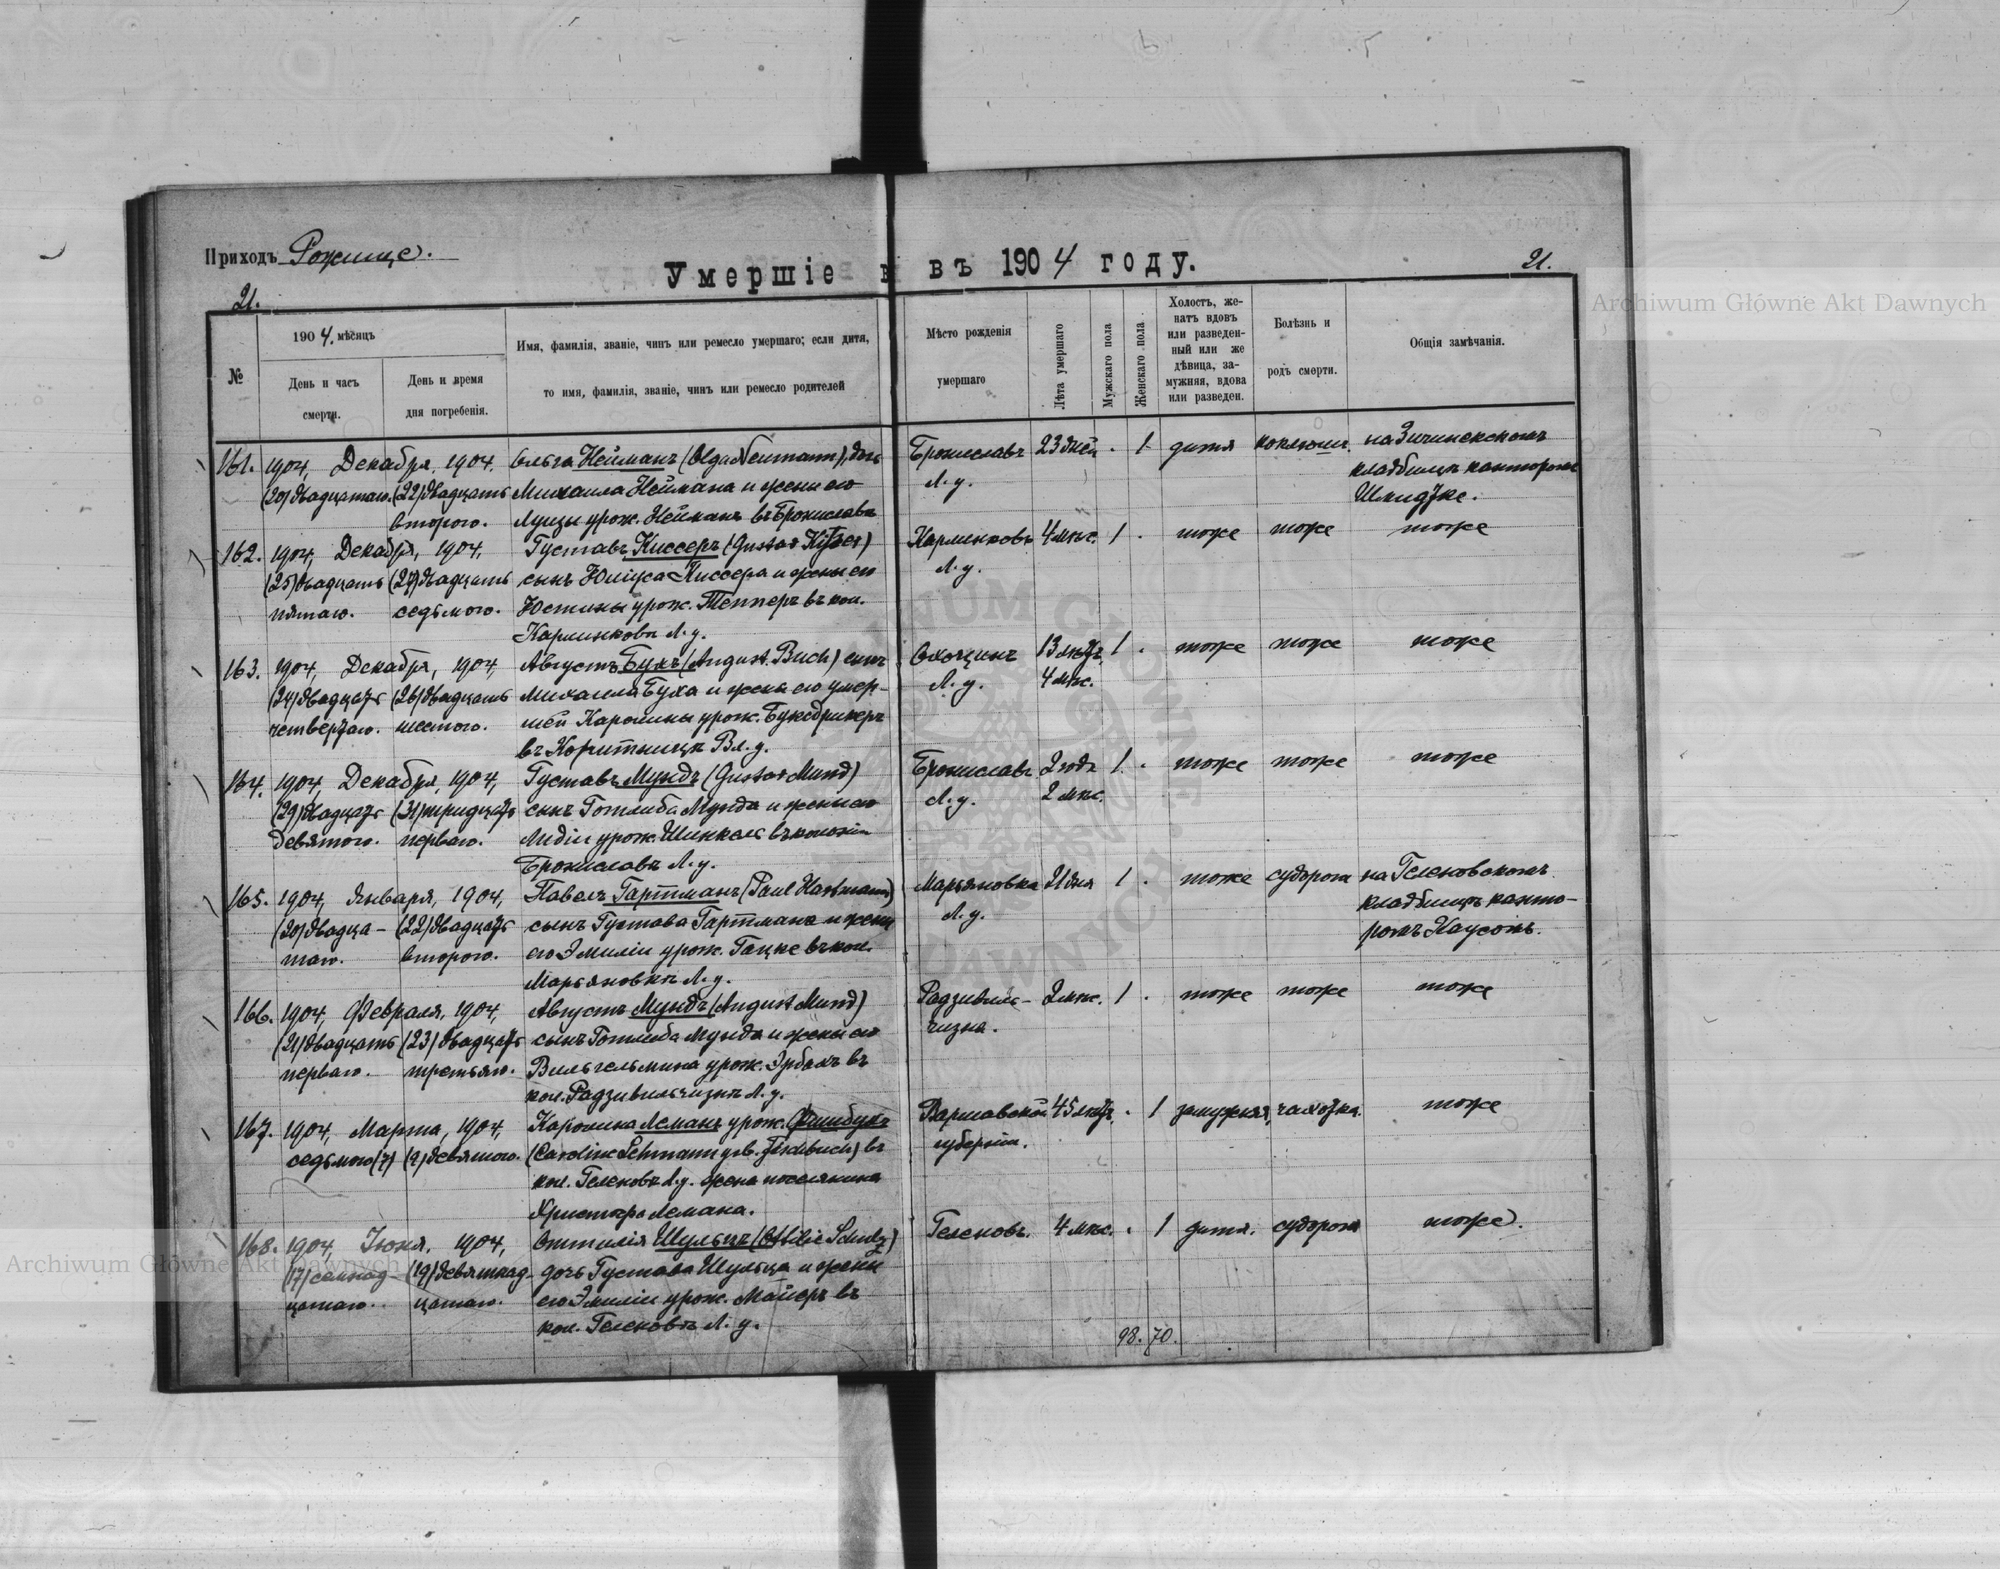 Приходъ Рожище.
Умершіе въ 1904 году.
21.
21.
№
1904. мѣсяцъ
День и часъ смерти.
День и время дня погребенія.
Имя, фамилія, званіе, чинъ или ремесло умершаго; если дитя,
то имя, фамилія, званіе, чинъ или ремесло родителей
Мѣсто рожденія умершаго
Лѣта умершаго
Мужскаго пола
Женскаго пола
Холостъ, же-
натъ вдовъ
или разведен-
ный или же
дѣвица, за-
мужняя, вдова
или разведен.
Болѣзнь и родъ смерти.
Общія замѣчанія.
161. 1904, Декабря, 1904. Ольга Нейманъ (Olga Neumann), дочь Брониславъ 23 дней . 1 дитя коклюшъ.
(20) двадцатаго. (22) двадцать Михаила Неймана и жены его Л. у. кладбищѣ канторомъ
второго. Луизы урож. Нейманъ въ Брониславѣ Шмидтке.
162. 1904, Декабря, 1904. Густавъ Киссеръ (Gustav) 4 мѣс. 1 . тоже тоже тоже
(25) двадцать (27) двадцать сынъ Юліуса Киссера и жены его Л. у.
пятаго. седьмого. Юстины урож. Тепперъ въ кол.
Л. у.
163. 1904, Декабря, 1904, Августъ Бухъ (August Buch) сынъ 13 лѣтъ 1 . тоже тоже тоже
(24) двадцать (26) двадцать Михаила Буха и жены его умер- Л. у. 4 мѣс.
четвертаго. шестого. шей Каролины урож.
въ Вл. у.
164. 1904, Декабря, 1904, Густавъ Мундъ (Gustav Mund) Брониславъ 2 года 1 . тоже тоже тоже
(29) двадцать (31) тридцать сынъ Готлиба Мунда и жены его Л. у. 2 мѣс.
девятого. перваго. Лидіи урож. Шинкель въ колоніи
Брониславъ Л. у.
165. 1904, Января, 1904, Павелъ Гартманъ (Paul Hartmann) Марьяновка 21 дня 1 . тоже судорога на Геленовскомъ
(20) двадца- (22) двадцать сынъ Густава Гартмана и жены Л. у. кладбищѣ канто-
таго. второго. его Эмиліи урож. въ кол. ромъ
Марьяновкѣ Л. у.
166. 1904, Февраля, 1904, Августъ Мундъ (August Mund) Радзивил- 2 мѣс. 1 . тоже тоже тоже
(21) двадцать (23) двадцать сынъ Готлиба Мунда и жены его чизна.
перваго. третьяго. Вильгельмина урож. въ
кол. Радзивильчизнѣ Л. у.
167. 1904, Марта, 1904, Каролина Леманъ урож. Фишбухъ Варшавской 45 лѣтъ . 1 замужняя, чахотка. тоже
седьмого (7) (9) девятого. (Caroline Lehmann geb. Fischbuch) въ губерніи.
кол. Геленовъ Л. у. жена поселянина
Лемана.
168. 1904, Іюня, 1904, Оттилія Шульцъ (Ottilie Schulz) Геленовъ. 4 мѣс. . 1 дитя. судорога тоже.
(17) семнад- (19) девятнад- дочь Густава Шульца и жены
цатаго. цатаго. его Эмиліи урож. Майеръ въ
кол. Геленовѣ Л. у.
98. 70.
Archiwum Główne Akt Dawnych
Archiwum Główne Akt Dawnych